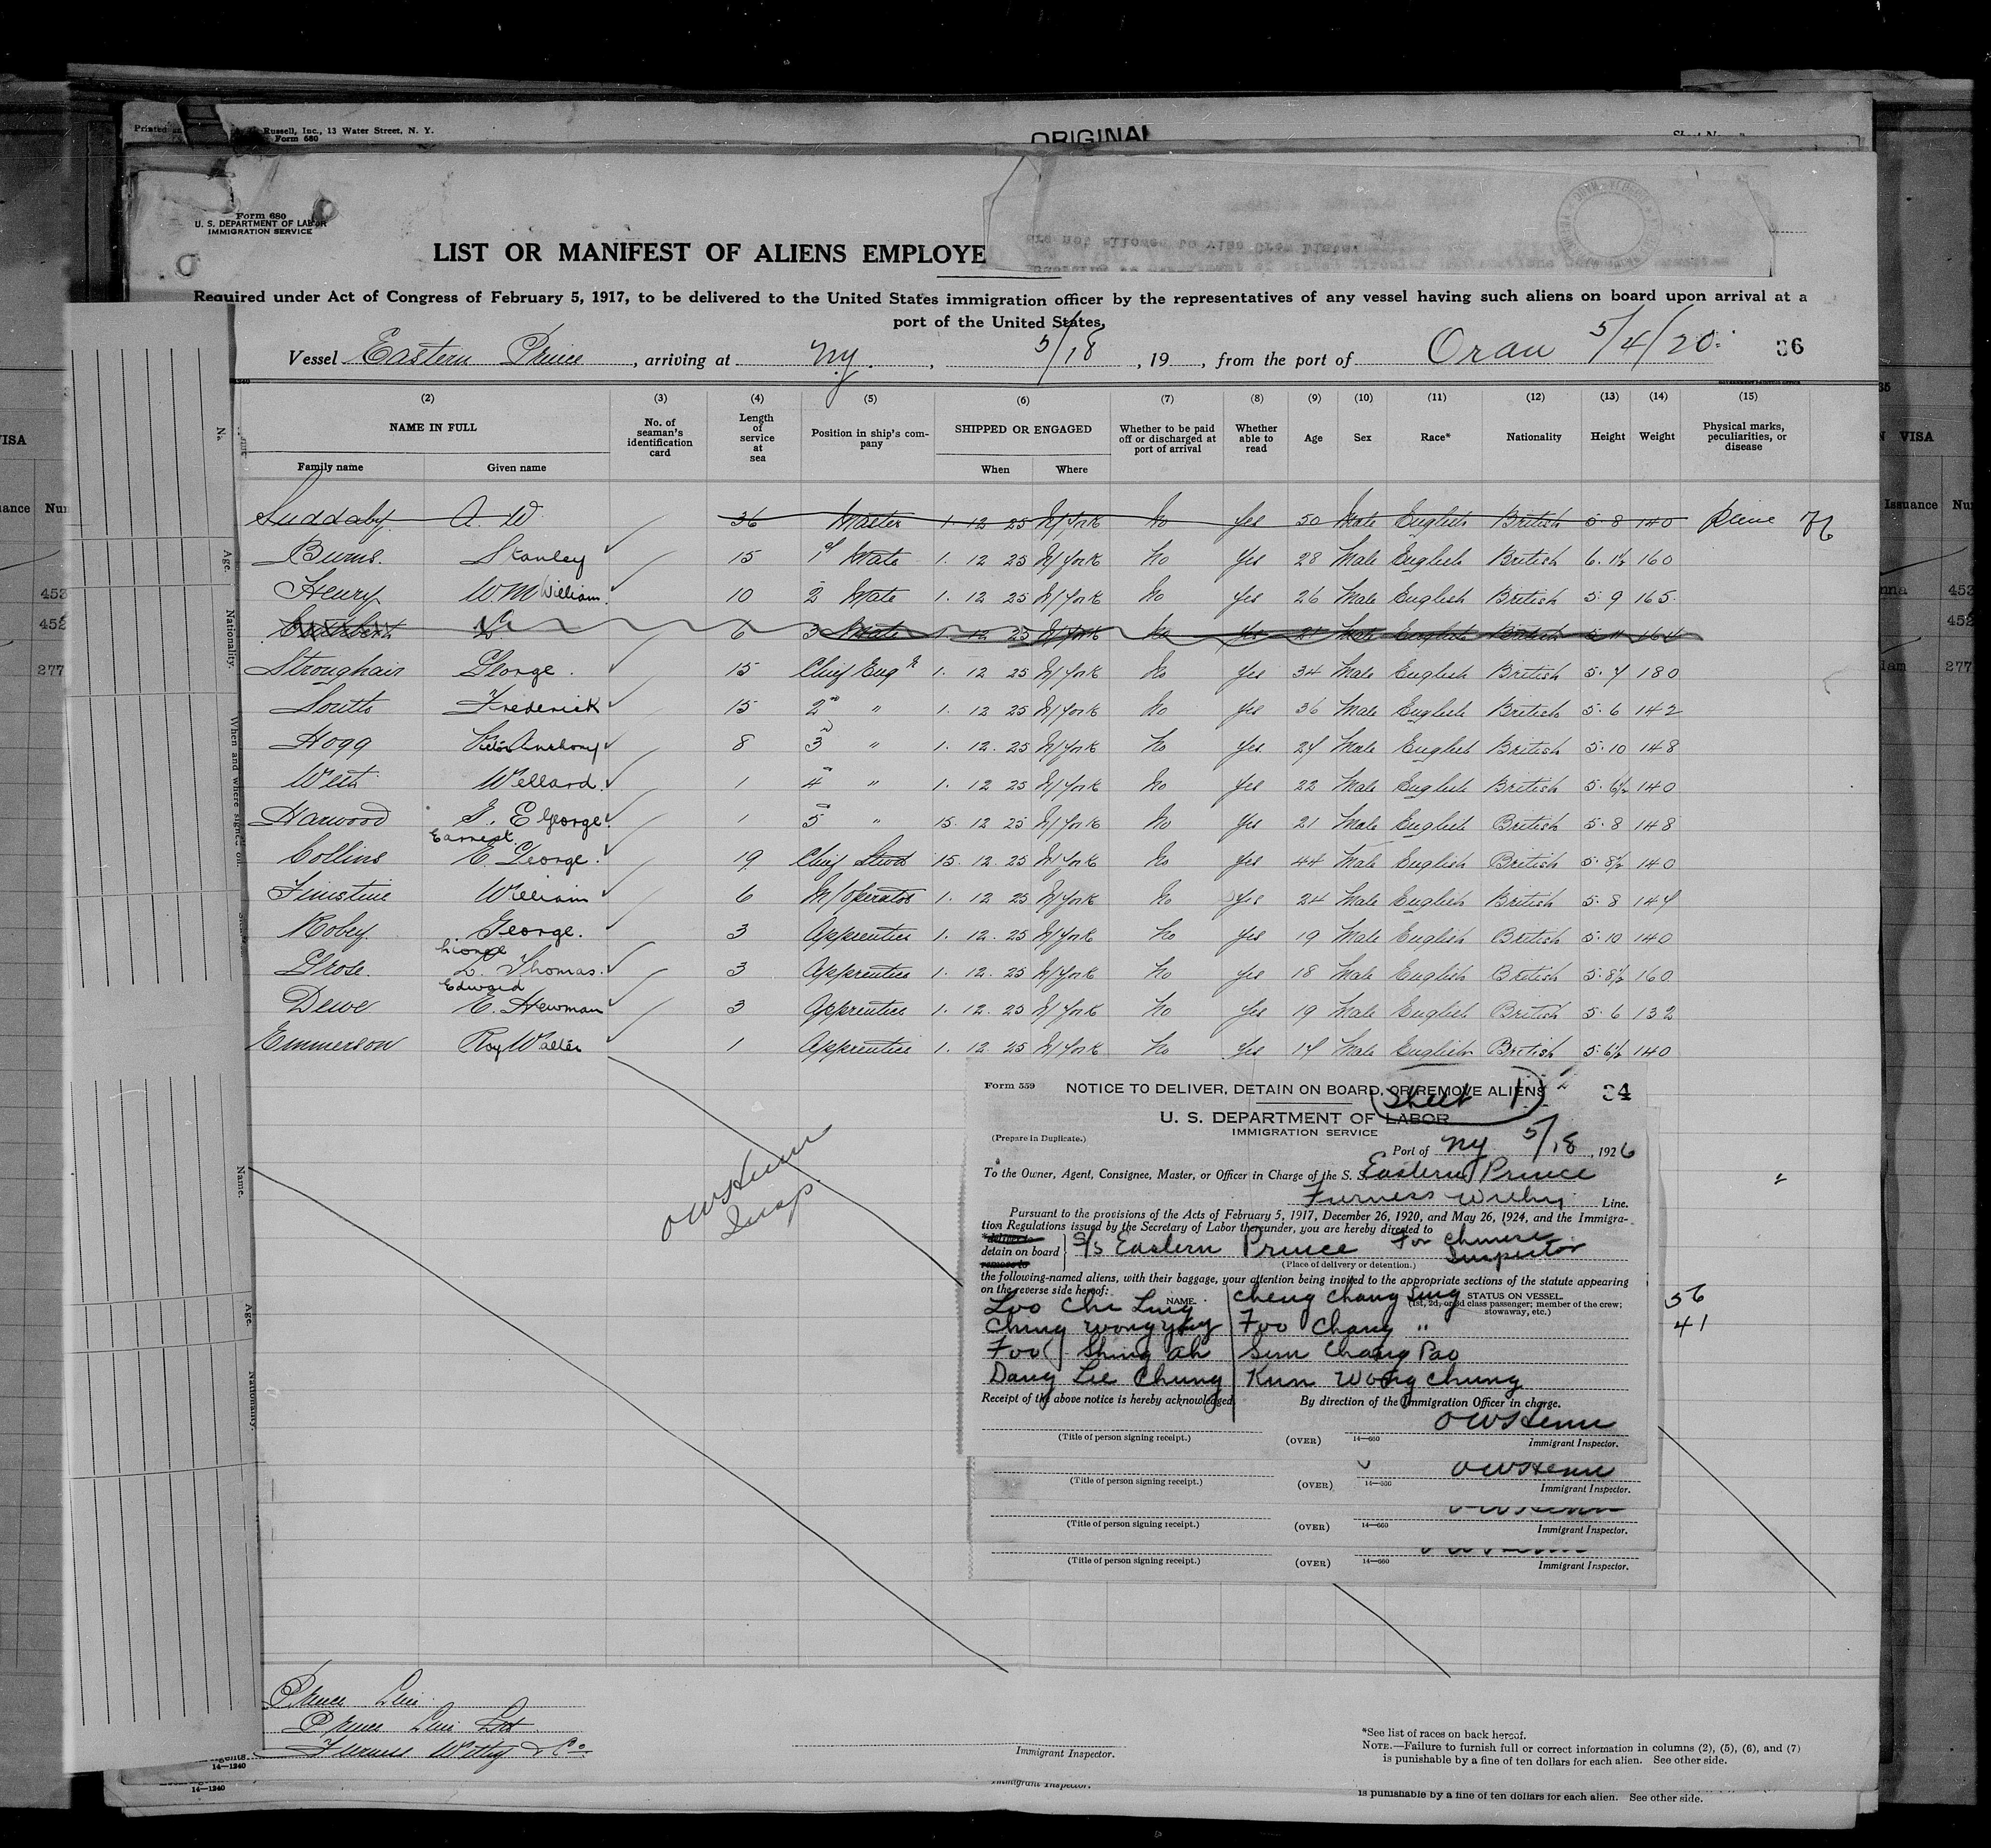 Russell, Inc., 13 Water Street, N. Y.
Form 680
ORIGINAL
Form 680
U. S. DEPARTMENT OF LABOR
IMMIGRATION SERVICE
LIST OR MANIFEST OF ALIENS EMPLOYE
Required under Act of Congress of February 5, 1917, to be delivered to the United States immigration officer by the representatives of any vessel having such aliens on board upon arrival at a
port of the United States,
Vessel Eastern Prince, arriving at NY., 5/18, 19, from the port of Oran 5/4/20 36
(2) (3) (4) (5) (6) (7) (8) (9) (10) (11) (12) (13) (14) (15)
NAME IN FULL No. of seaman's identification card Length of service at sea Position in ship's company SHIPPED OR ENGAGED Whether to be paid off or discharged at port of arrival Whether able to read Age Sex Race* Nationality Height Weight Physical marks, peculiarities, or disease
Family name Given name When Where
Suddaby A. W 36 Master 1. 12 25 N/York No Yes 50 Male English British 5 8 140
Burns. Stanley 15 1st Mate 1. 12 25 N/York No Yes 28 Male English British 6. 1½ 160
Henry W.M William 10 2 Mate 1. 12 25 N/York No Yes 26 Male English British 5 9 165
6 3 Mate 12 25 N/York No Yes 21 Male English British 5 11 164
Stroughair George. 15 Chief Engr 1. 12 25 N/York No Yes 34 Male English British 5. 7 180
Frederick 15 2 " 1. 12 25 N/York No Yes 36 Male English British 5. 6 142
Hogg Anthony 8 3 " 1. 12. 25 N/York No Yes 27 Male English British 5. 10 148
Wellard. 1 4 " 1. 12 25 N/York No Yes 22 Male English British 5. 6½ 140
Harwood G. E George. 1 5 " 15. 12 25 N/York No Yes 21 Male English British 5. 8 148
Earnest
Collins E. George. 19 Chief Stwd 15. 12. 25 N/York No Yes 44 Male English British 5. 8½ 140
William 6 W/operator 1. 12 25 N/York No Yes 24 Male English British 5. 8 147
Robey. George. 3 Apprentice 1. 12. 25 N/York No Yes 19 Male English British 5. 10 140
Lionel
Grose. L. Thomas. 3 Apprentice 1. 12. 25 N/York No Yes 18 Male English British 5. 8½ 160
Edward
Dewe E. Newman 3 Apprentice 1. 12. 25 N/York No Yes 19 Male English British 5. 6 132
Emmerson Roy Walter 1 Apprentice 1. 12. 25 N/York No Yes 17 Male English British 5. 6½ 140
OWHenn
Insp.
Form 559 NOTICE TO DELIVER, DETAIN ON BOARD, OR REMOVE ALIENS 34
(Sheet 1)
U. S. DEPARTMENT OF LABOR
IMMIGRATION SERVICE
(Prepare in Duplicate.) Port of NY 5/18, 1926
To the Owner, Agent, Consignee, Master, or Officer in Charge of the S. S. Eastern Prince
Furness Withy Line.
Pursuant to the provisions of the Acts of February 5, 1917, December 26, 1920, and May 26, 1924, and the Immigra-
tion Regulations issued by the Secretary of Labor thereunder, you are hereby directed to
*deliver to
detain on board S/s Eastern Prince For Chinese Inspector
remove to
(Place of delivery or detention.)
the following-named aliens, with their baggage, your attention being invited to the appropriate sections of the statute appearing
on the reverse side hereof:
NAME. STATUS ON VESSEL.
(1st, 2d, or 3d class passenger; member of the crew; stowaway, etc.)
Loo Chi Ling Cheng Chang Sing 56
Ching Wong Foo Chang " 41
Foo Shing Ah Sun Chang Pao
Dang Lee Chung Kun Wong Chung
Receipt of the above notice is hereby acknowledged. By direction of the Immigration Officer in charge.
OWHenn
(Title of person signing receipt.) (OVER) 14—660 Immigrant Inspector.
OWHenn
(Title of person signing receipt.) (OVER) 14—660 Immigrant Inspector.
(Title of person signing receipt.) (OVER) 14—660 Immigrant Inspector.
(Title of person signing receipt.) (OVER) 14—660 Immigrant Inspector.
Prince Line
Prince Line Ltd
Furness Withy & Co
Immigrant Inspector.
*See list of races on back hereof.
NOTE.—Failure to furnish full or correct information in columns (2), (5), (6), and (7)
is punishable by a fine of ten dollars for each alien. See other side.
14—1240
14—1240
Immigrant Inspector.
is punishable by a fine of ten dollars for each alien. See other side.
Age.
Nationality.
When and where signed on.
Name.
Age.
Nationality.
VISA
453
452
277
Issuance